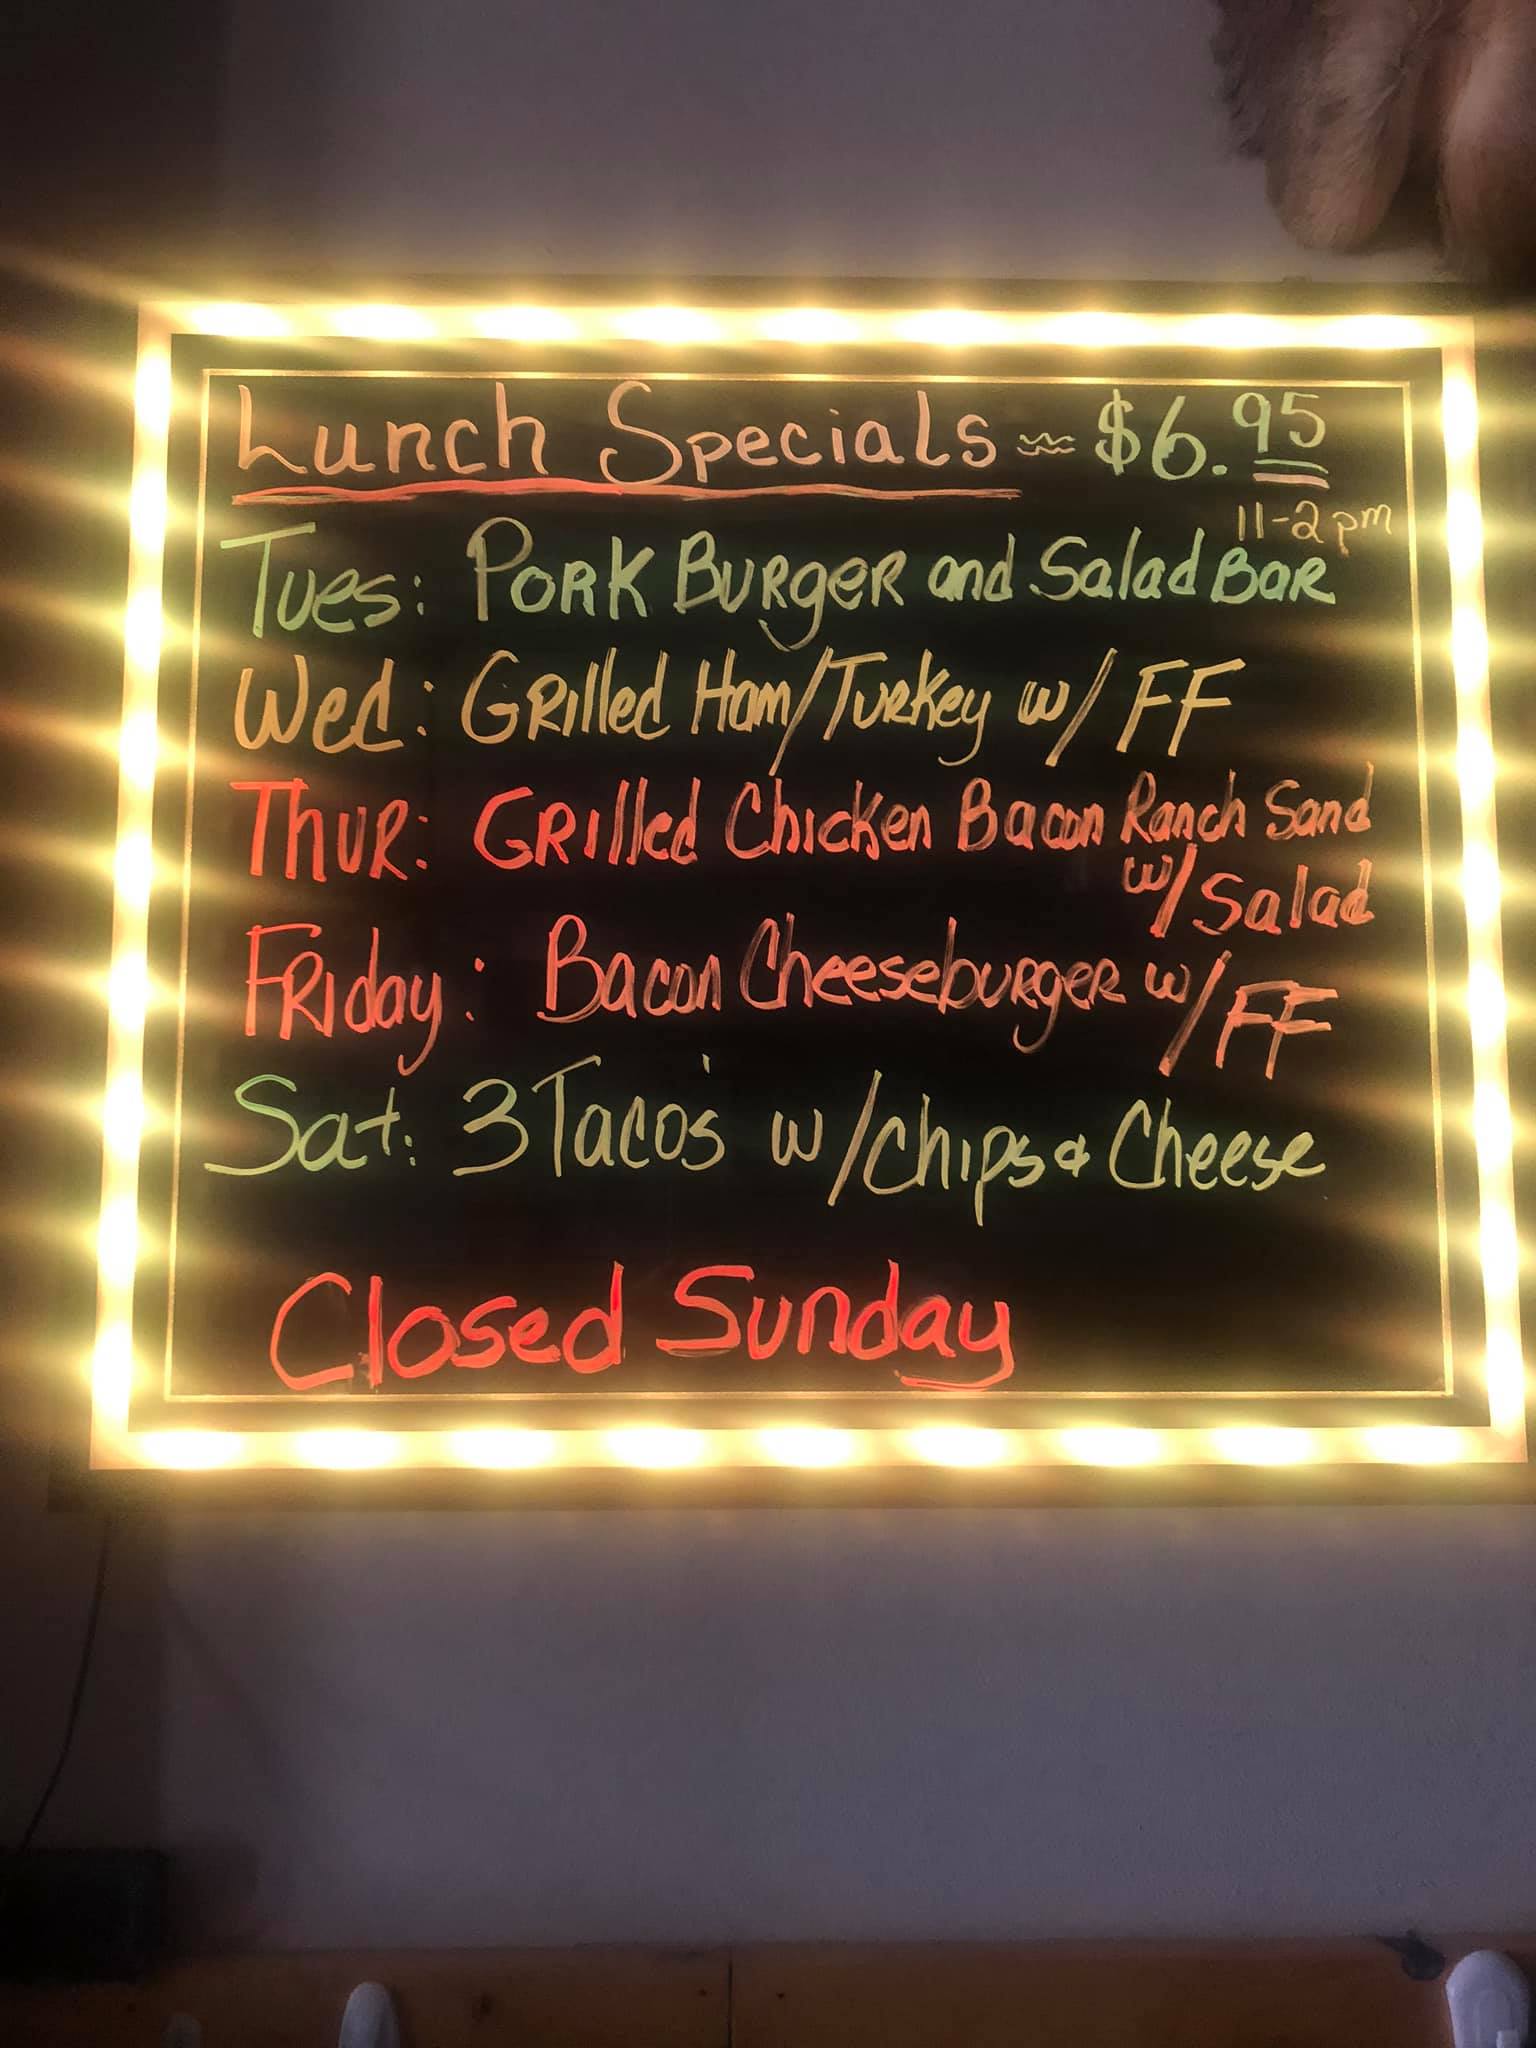 Lunch Specials ~ $6.95
11-2pm
Tues: Pork Burger and Salad Bar
Wed: Grilled Ham/Turkey w/ FF
Thur: Grilled Chicken Bacon Ranch Sand
w/Salad
Friday: Bacon Cheeseburger w/ FF
Sat: 3 Taco's w/chips & Cheese
Closed Sunday